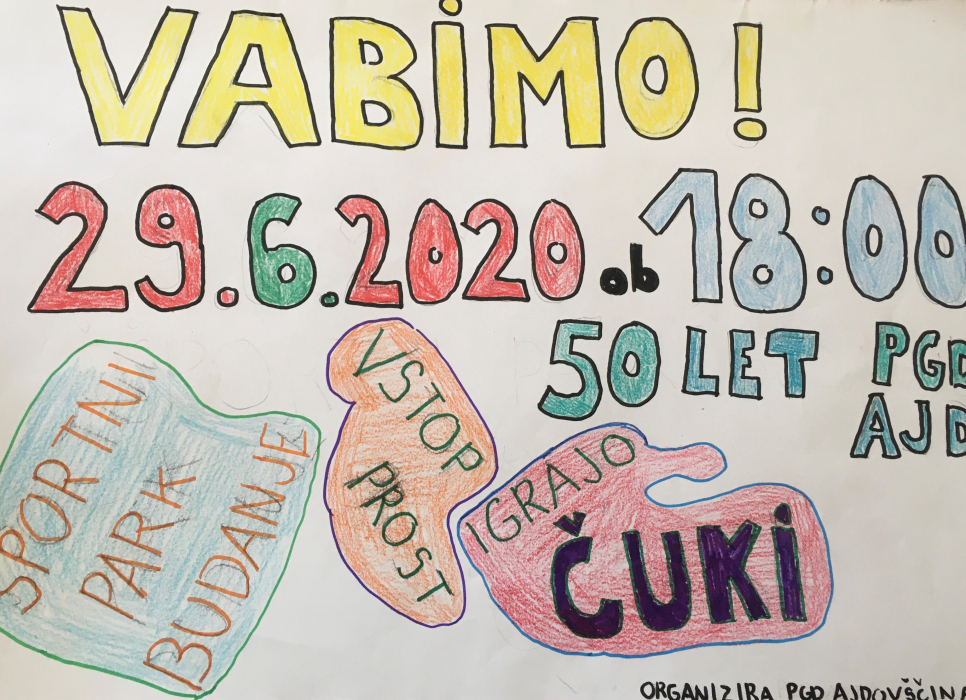 VABIMO!
29.6.2020 ob 18:00
50 LET PGD
AJD
ŠPORTNI
PARK
BUDANJE
VSTOP
PROST
IGRAJO
ČUKI
ORGANIZIRA PGD AJDOVŠČINA